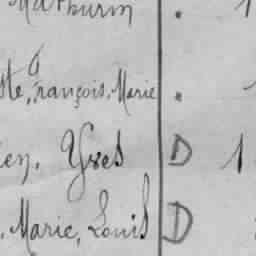 Mathurin . 1
ste, François, Marie .
ien, Yves D 1
, Marie, Louis D